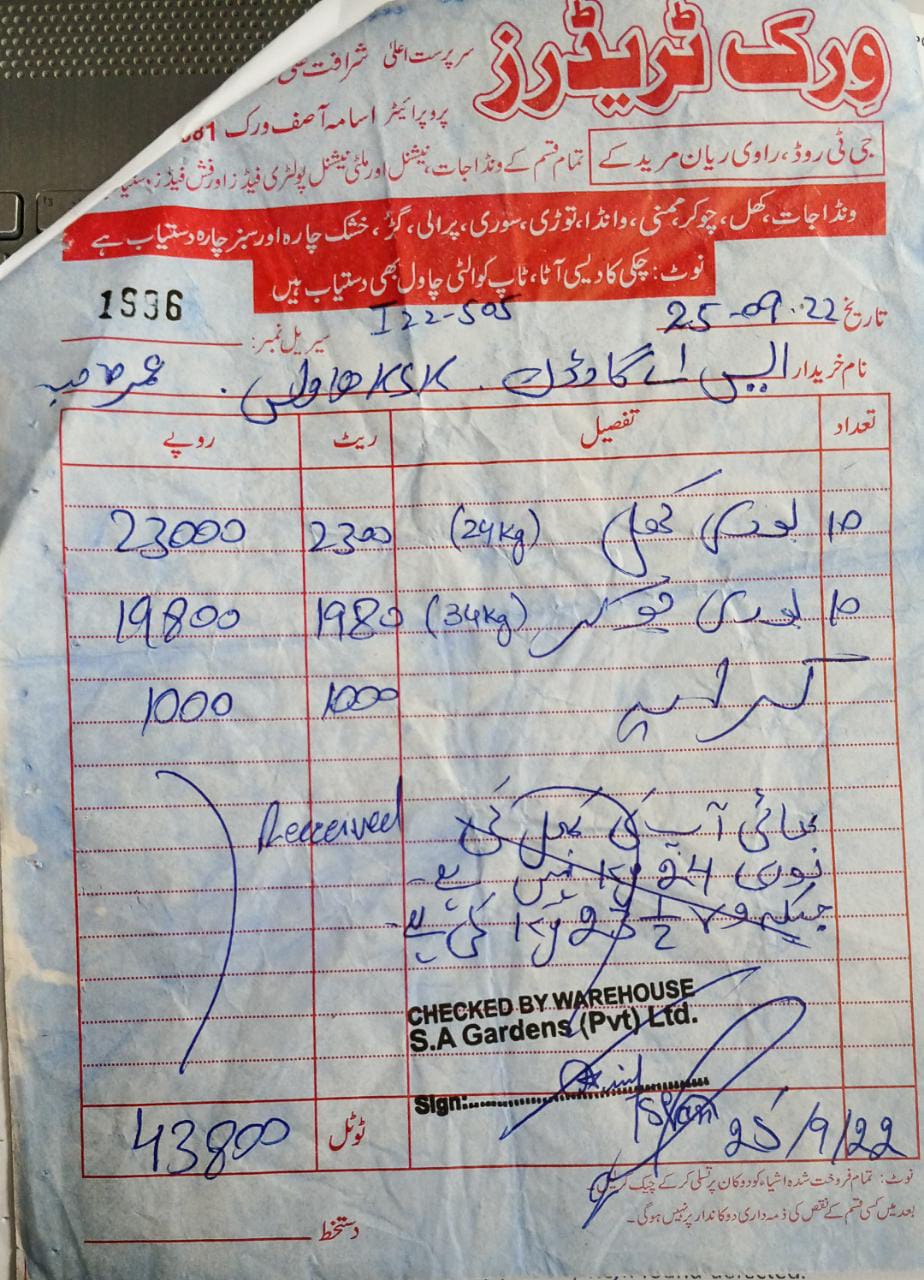 ورک ٹریڈرز
سرپرست اعلیٰ شرافت علی
پروپرائیٹر اسامہ آصف ورک 681
جی ٹی روڈ، راوی ریان مریدکے
تمام قسم کے ونڈا جات، نیشنل اور ملٹی نیشنل پولٹری فیڈز اور فش فیڈز دستیاب
ونڈا جات، کھل، چوکر، مٹھنی، وانڈا، توڑی، سوری، پرالی، گڑ، خشک چارہ اور سبز چارہ دستیاب ہے
نوٹ: چکی کا دیسی آٹا، ٹاپ کوالٹی چاول بھی دستیاب ہیں
تاریخ 25-09-22 I22-505
سیریل نمبر: 1936
نام خریدار ایس اے گارڈن KSK ہاؤس عمر صاحب
تعداد تفصیل ریٹ روپے
10 بوری کھل (24kg) 2300 23000
10 بوری چوکر (34kg) 1980 19800
کرایہ 1000 1000
Received
بھائی آپ کی کھل کی
بوری 24 kg نہیں ہے۔
جبکہ 23 1/2 kg کی ہے۔
CHECKED BY WAREHOUSE
S.A Gardens (Pvt) Ltd.
Sign:
25/9/22
ٹوٹل 43800
نوٹ: تمام فروخت شدہ اشیاء کو دوکان پر تسلی کر کے چیک کریں
بعد میں کسی قسم کے نقص کی ذمہ داری دوکاندار پر نہیں ہوگی۔
دستخط